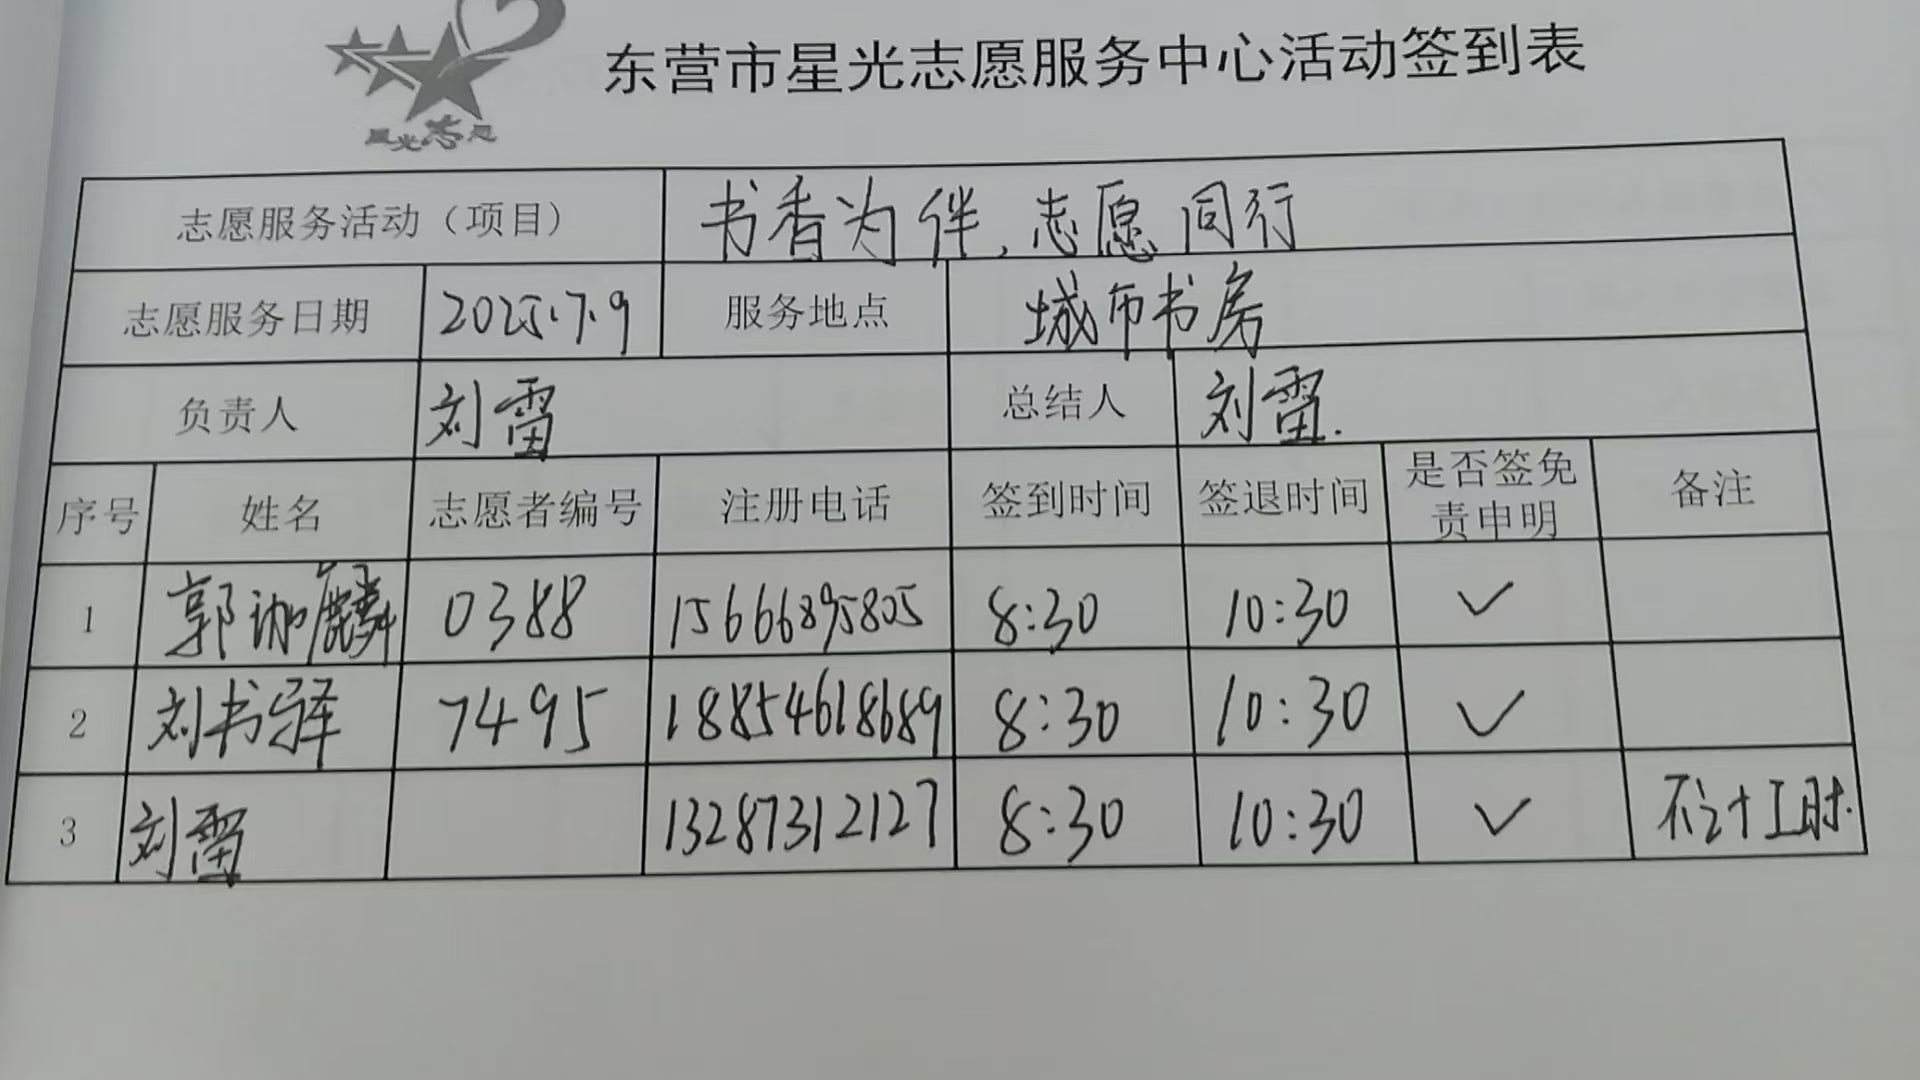 星光志愿
东营市星光志愿服务中心活动签到表
志愿服务活动（项目） 书香为伴，志愿同行
志愿服务日期 2025.7.9 服务地点 城市书房
负责人 刘雷 总结人 刘雷.
序号 姓名 志愿者编号 注册电话 签到时间 签退时间 是否签免责申明 备注
1 郭迦麟 0388 15666895805 8:30 10:30 ✓
2 刘书驿 7495 18854618689 8:30 10:30 ✓
3 刘雷 13287312127 8:30 10:30 ✓ 不计工时.